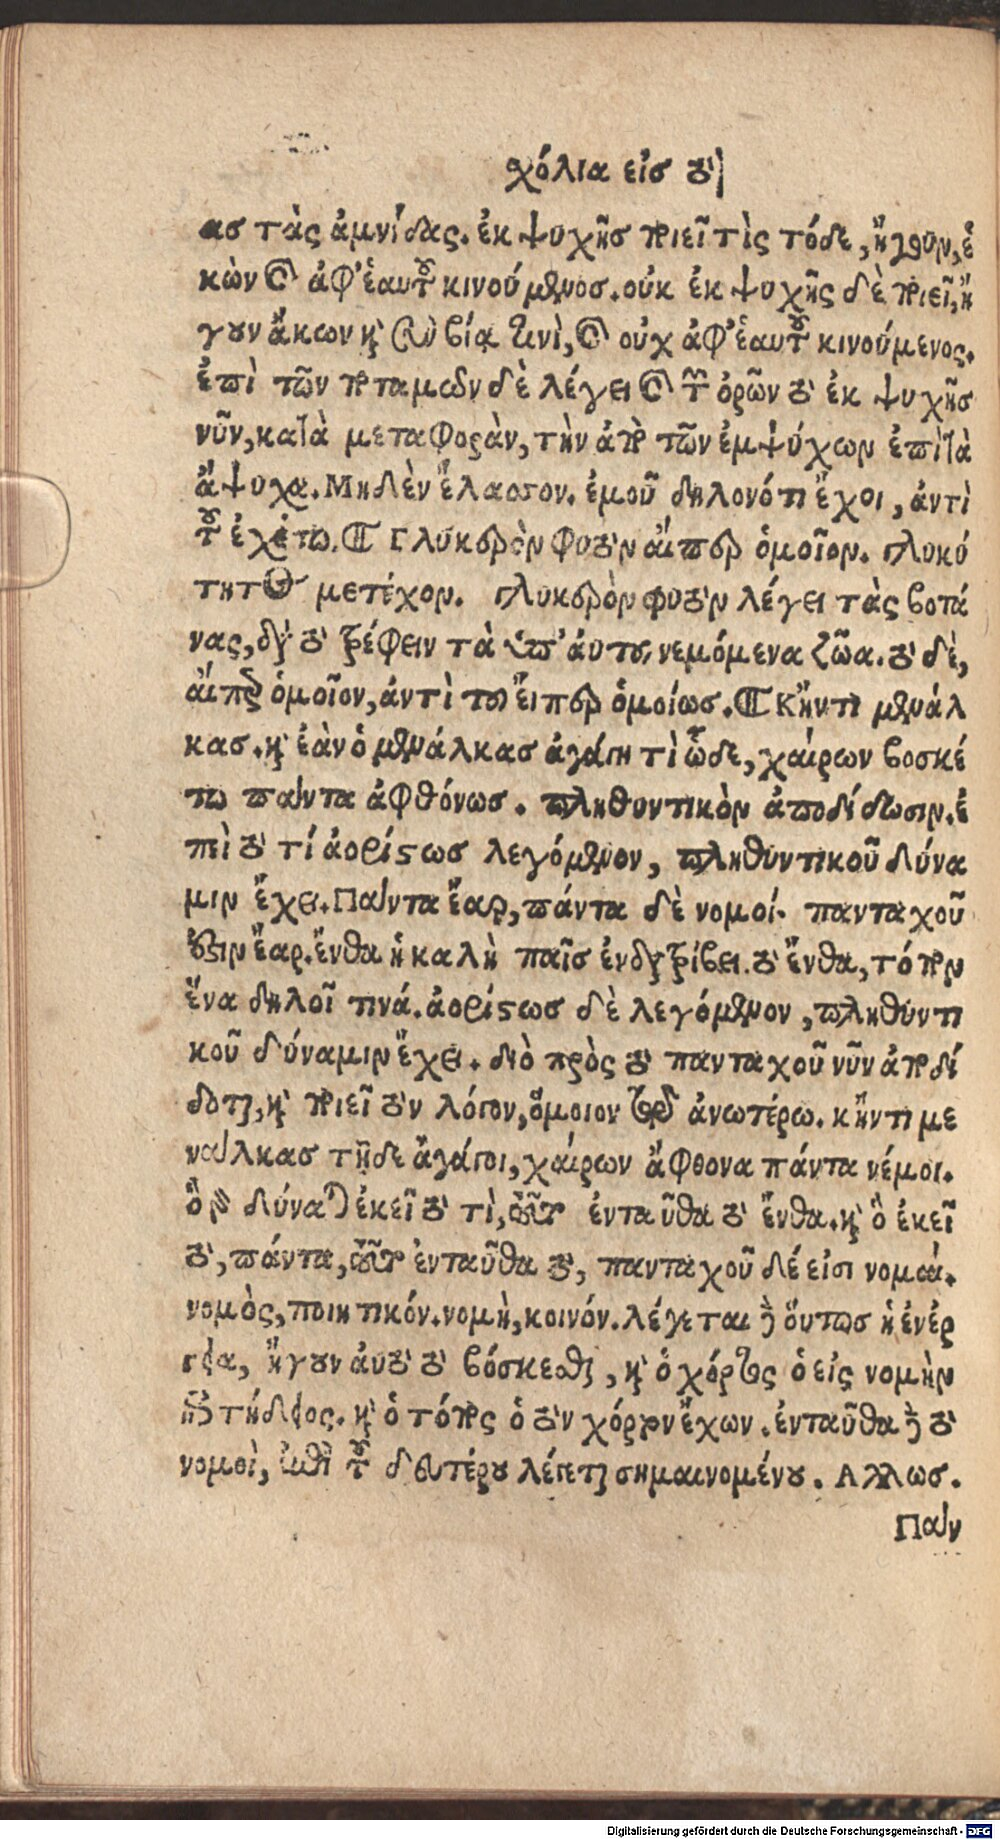 χόλια εἰσ τὸ
ασ τὰς ἀμνίδας. ἐκ ψυχῆσ ποιεῖ τὶς τόδε, ἤγουν, ἑ
κὼν καὶ ἀφ' ἑαυτοῦ κινούμενοσ. οὐκ ἐκ ψυχῆς δὲ ποιεῖ, ἤ
γουν ἄκων καὶ σὺν βία τινὶ, καὶ οὐχ ἀφ' ἑαυτοῦ κινούμενος.
ἐπὶ τῶν ποταμῶν δὲ λέγει καὶ τῶν ὀρῶν τὸ ἐκ ψυχῆσ
νῦν, κατὰ μεταφορὰν, τὴν ἀπὸ τῶν ἐμψύχων ἐπὶ τὰ
ἄψυχα. Μηδὲν ἔλασσον. ἐμοῦ δηλονότι ἔχοι, ἀντὶ
τοῦ ἐχέτω. Γλυκερὸν φυτὸν αἴπερ ὁμοῖον. γλυκύ
τητος μετέχον. γλυκερὸν φυτὸν λέγει τὰς βοτά
νας, διὰ τὸ τρέφειν τὰ ὑπ' ἀυτοῦ, νεμόμενα ζῶα. τὸ δὲ,
αἴπερ ὁμοῖον, ἀντὶ τοῦ εἴπερ ὁμοίωσ. Κἤντι μενάλ
κασ. καὶ ἐὰν ὁ μενάλκασ ἀγάγη τὶ ὧδε, χαίρων βοσκέ
τω πάντα ἀφθόνωσ. πληθυντικὸν ἀποδίδωσιν. ἐ
πὶ τὸ τί ἀορίστωσ λεγόμενον, πληθυντικοῦ δύνα
μιν ἔχει. Πάντα ἔαρ, πάντα δὲ νομοί. πανταχοῦ
ἐστιν ἔαρ. ἔνθα ἡ καλὴ παῖσ ἐνδιατρίβει. τὸ ἔνθα, τόπον
ἕνα δηλοῖ τινά. ἀορίστωσ δὲ λεγόμενον, πληθυντι
κοῦ δύναμιν ἔχει. διὸ πρὸς τὸ πανταχοῦ νῦν ἀποδί
δοται, καὶ ποιεῖ τὸν λόγον, ὅμοιον τῷ ἀνωτέρω. κἤντι με
νάλκασ τῆδε ἀγάγοι, χαίρων ἄφθονα πάντα νέμοι.
ὃ γὰρ δύναται ἐκεῖ τὸ τὶ, τοῦτο ἐνταῦθα τὸ ἔνθα. καὶ ὃ ἐκεῖ
τὸ, πάντα, τοῦτο ἐνταῦθα τὸ, πανταχοῦ δέ εἰσι νομαί.
νομὸς, ποιητικόν. νομὴ, κοινόν. λέγεται δὲ ὅυτωσ ἡ ἐνέρ
γεια, ἤγουν ἀυτὸ τὸ βόσκεσθαι, καὶ ὁ χόρτος ὁ εἰς νομὴν
ἐπιτήδειος. καὶ ὁ τόπος ὁ τὸν χόρτον ἔχων. ἐνταῦθα δὲ τὸ
νομοὶ, ἐπὶ τοῦ δευτέρου λέγεται σημαινομένου. Αλλωσ.
Πάν